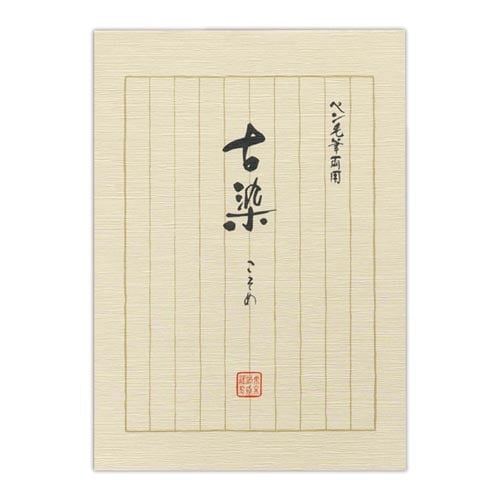 ペン毛筆両用
古染
こそめ